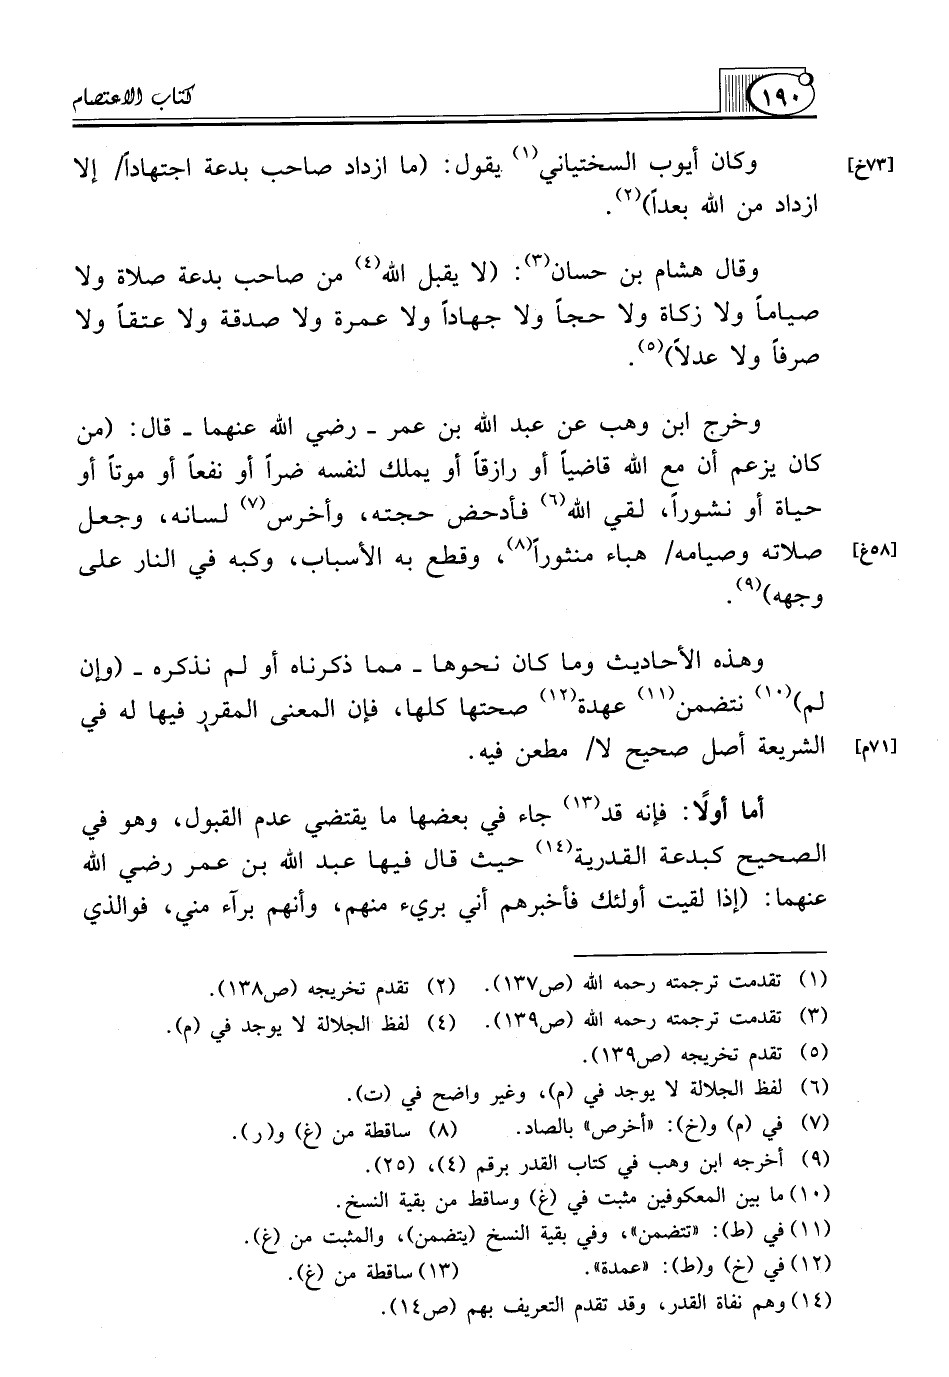 ١٩٠ كتاب الاعتصام
[٧٣خ] وكان أيوب السختياني(١) يقول: (ما ازداد صاحب بدعة اجتهاداً/ إلا
ازداد من الله بعداً)(٢).
وقال هشام بن حسان(٣): (لا يقبل الله(٤) من صاحب بدعة صلاة ولا
صياماً ولا زكاة ولا حجاً ولا جهاداً ولا عمرة ولا صدقة ولا عتقاً ولا
صرفاً ولا عدلاً)(٥).
وخرج ابن وهب عن عبد الله بن عمر ـ رضي الله عنهما ـ قال: (من
كان يزعم أن مع الله قاضياً أو رازقاً أو يملك لنفسه ضراً أو نفعاً أو موتاً أو
حياة أو نشوراً، لقي الله(٦) فأدحض حجته، وأخرس(٧) لسانه، وجعل
[٥٨غ] صلاته وصيامه/ هباء منثوراً(٨)، وقطع به الأسباب، وكبه في النار على
وجهه)(٩).
وهذه الأحاديث وما كان نحوها ـ مما ذكرناه أو لم نذكره ـ (وإن
لم)(١٠) نتضمن(١١) عهدة(١٢) صحتها كلها، فإن المعنى المقرر فيها له في
[٧١م] الشريعة أصل صحيح لا/ مطعن فيه.
أما أولًا: فإنه قد(١٣) جاء في بعضها ما يقتضي عدم القبول، وهو في
الصحيح كبدعة القدرية(١٤) حيث قال فيها عبد الله بن عمر رضي الله
عنهما: (إذا لقيت أولئك فأخبرهم أني بريء منهم، وأنهم برآء مني، فوالذي
(١) تقدمت ترجمته رحمه الله (ص١٣٧). (٢) تقدم تخريجه (ص١٣٨).
(٣) تقدمت ترجمته رحمه الله (ص١٣٩). (٤) لفظ الجلالة لا يوجد في (م).
(٥) تقدم تخريجه (ص١٣٩).
(٦) لفظ الجلالة لا يوجد في (م)، وغير واضح في (ت).
(٧) في (م) و(خ): «أخرص» بالصاد. (٨) ساقطة من (غ) و(ر).
(٩) أخرجه ابن وهب في كتاب القدر برقم (٤)، (٢٥).
(١٠) ما بين المعكوفين مثبت في (غ) وساقط من بقية النسخ.
(١١) في (ط): «تتضمن»، وفي بقية النسخ (يتضمن)، والمثبت من (غ).
(١٢) في (خ) و(ط): «عمدة». (١٣) ساقطة من (غ).
(١٤) وهم نفاة القدر، وقد تقدم التعريف بهم (ص١٤).